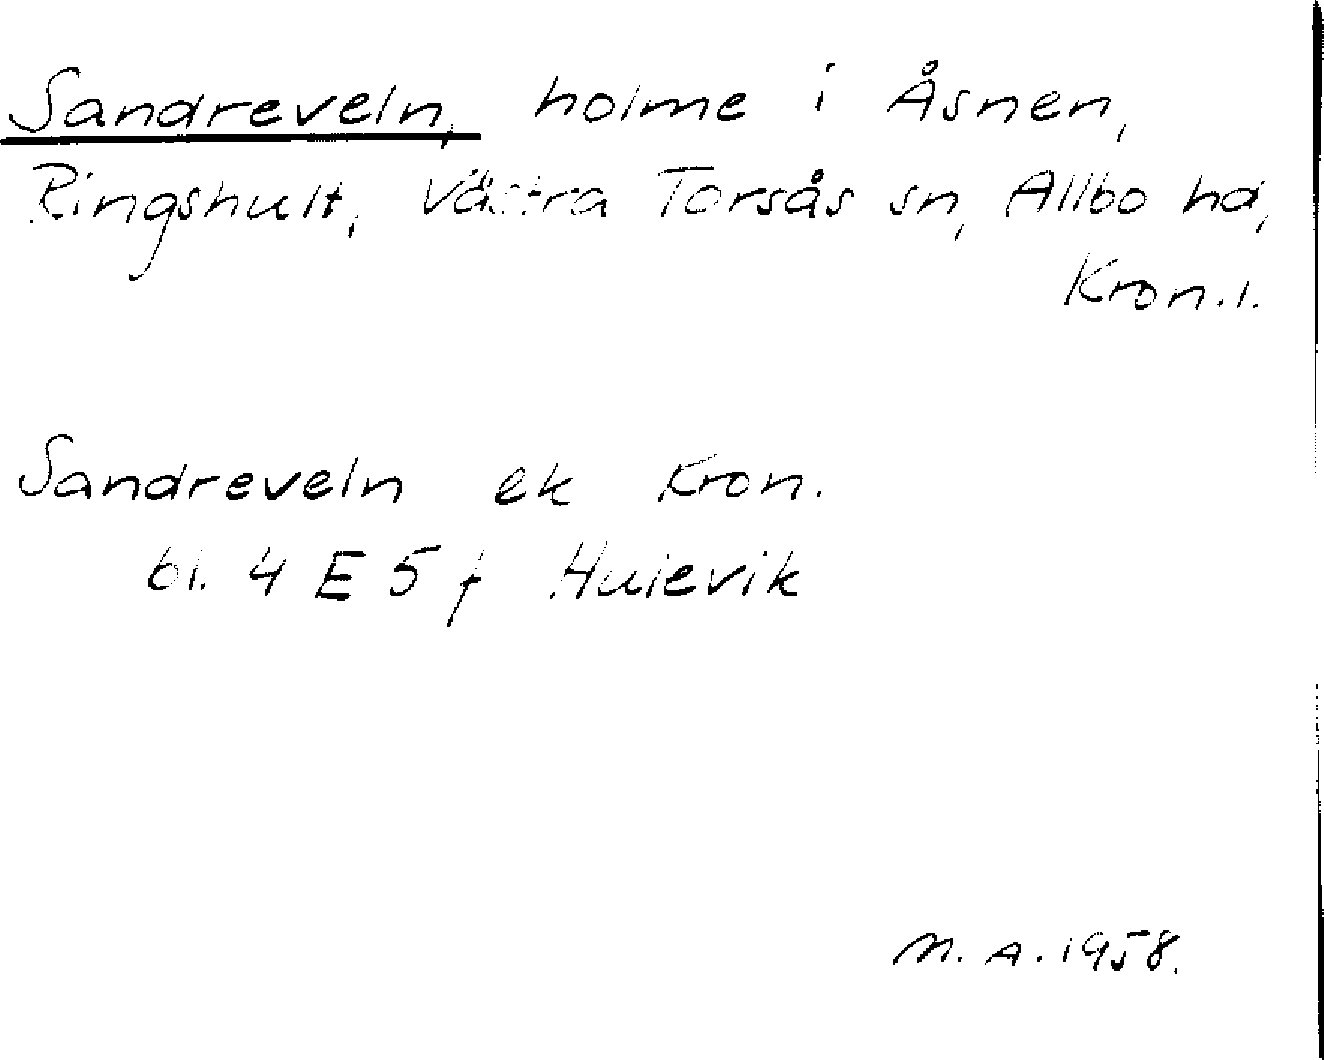 Sandreveln, holme i Åsnen,
Ringshult, Västra Torsås sn, Allbo hd,
Kron.l.
Sandreveln ek Kron.
bl. 4 E 5 f Hulevik
M. A. 1958.